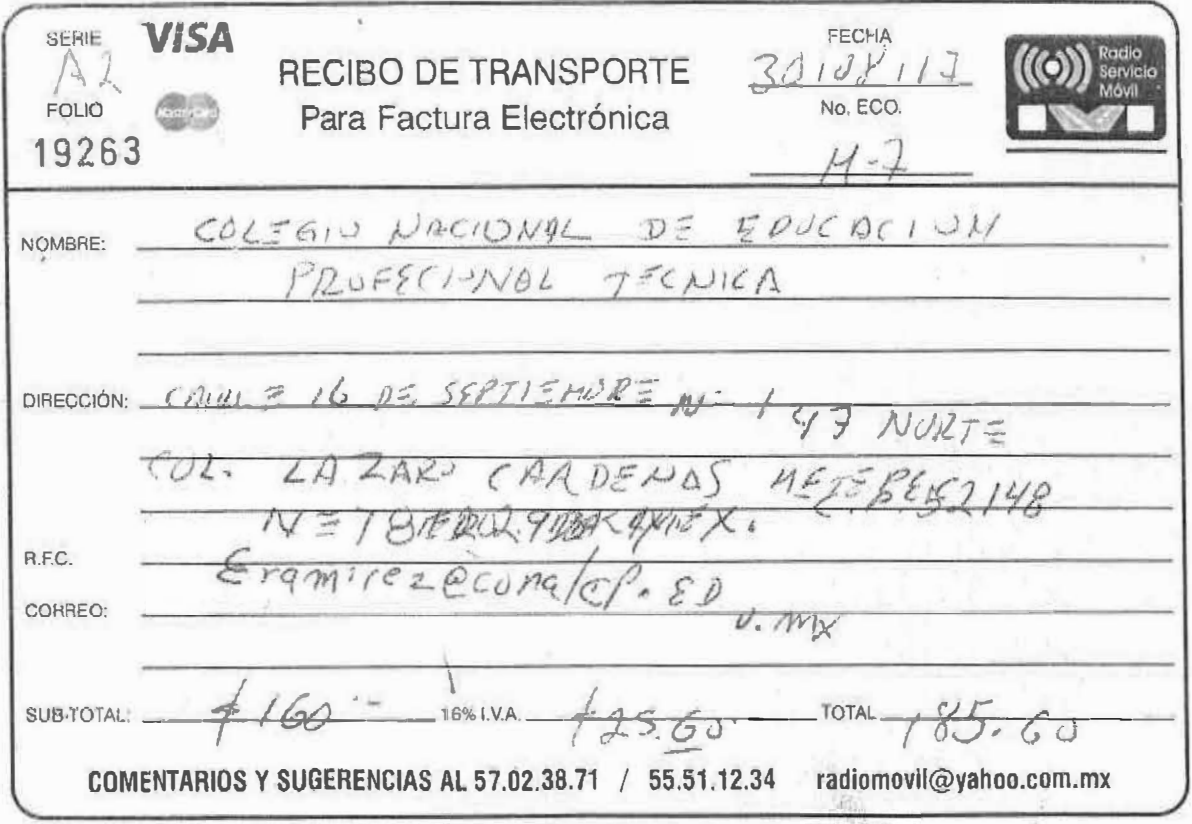 SERIE VISA
A2
FOLIO MasterCard
19263
RECIBO DE TRANSPORTE
Para Factura Electrónica
FECHA
30/08/17
No. ECO.
M-7
Radio
Servicio
Móvil
NOMBRE: COLEGIO NACIONAL DE EDUCACION
PROFECIONAL TECNICA
DIRECCIÓN: CALLE 16 DE SEPTIEMBRE Nº 147 NORTE
COL. LAZARO CARDENAS METEPEC 52148
R.F.C.
CORREO: Eramirez@conalep.ED
U.MX
SUB-TOTAL: $160- 16% I.V.A. $25.60 TOTAL 185.60
COMENTARIOS Y SUGERENCIAS AL 57.02.38.71 / 55.51.12.34 radiomovil@yahoo.com.mx